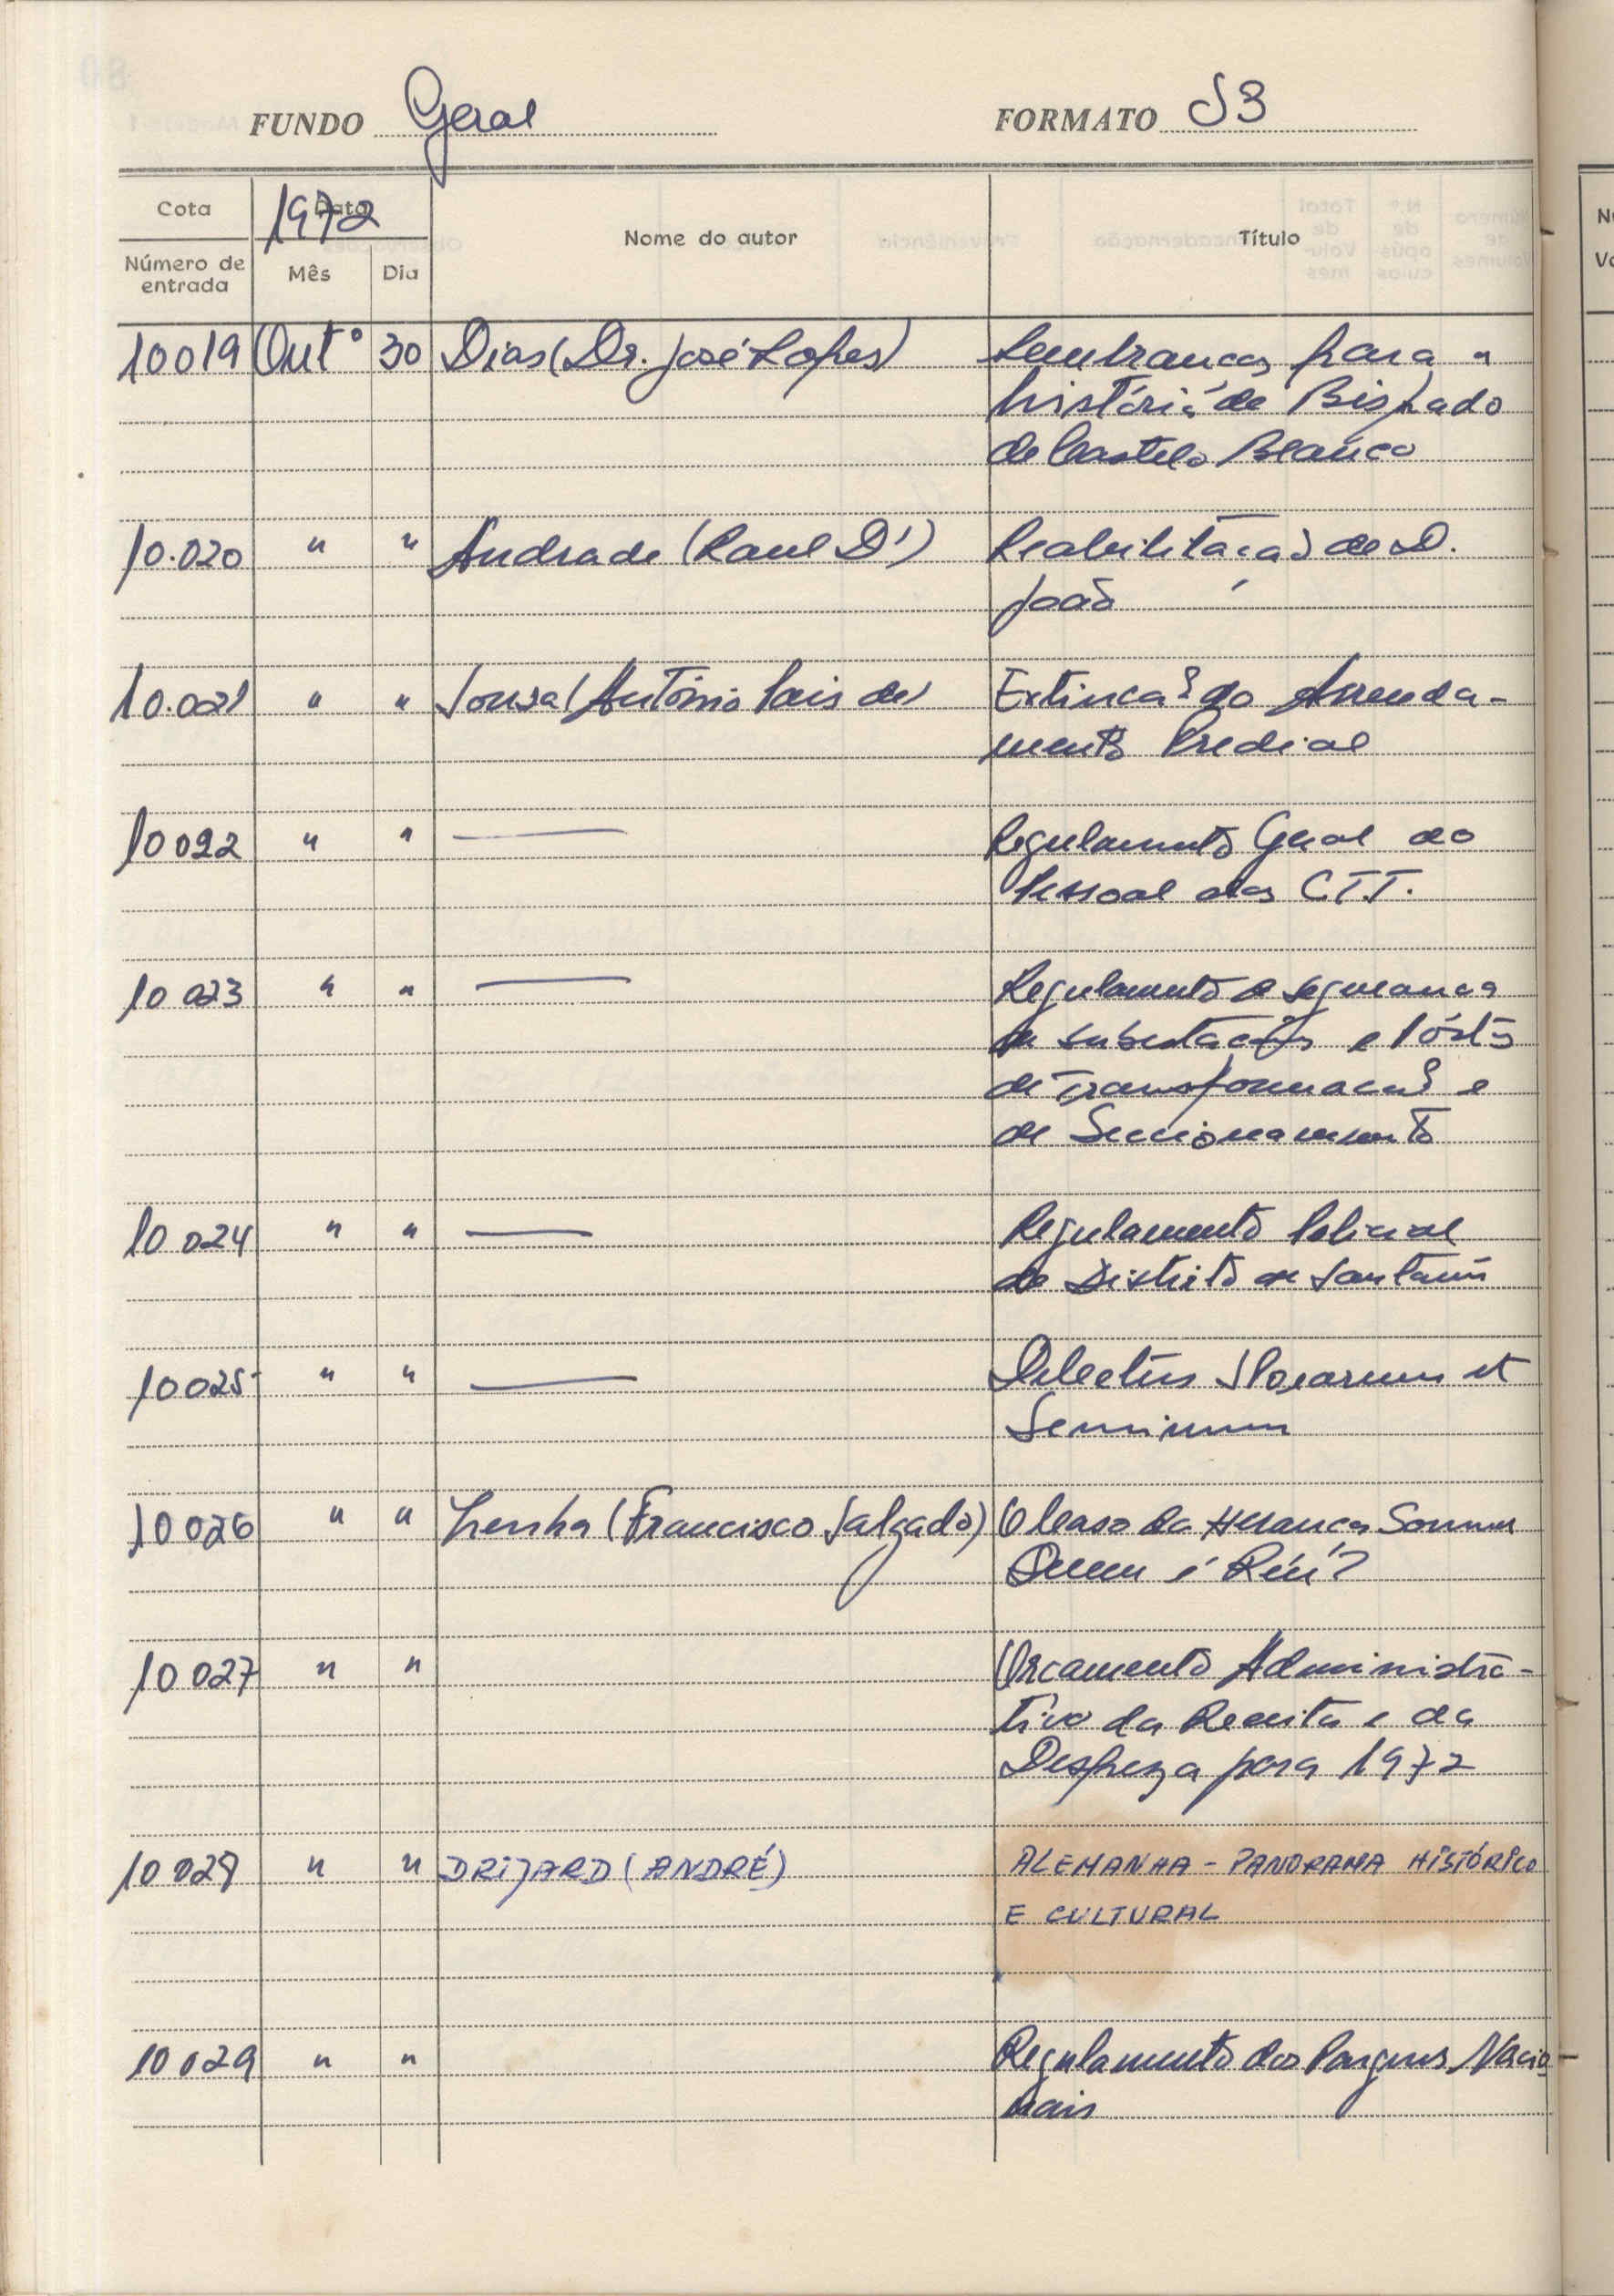 FUNDO Geral FORMATO S3
Cota 1972 Data Nome do autor Título
Número de entrada Mês Dia
10019 Outº 30 Dias (Dr. José Lopes) Lembranças para a
história do Bispado
de Castelo Branco
10.020 " " Andrade (Raul D') Reabilitação de D.
João
10.021 " " Sousa (António Pais de) Extinção do Arrenda-
mento Predial
10022 " " — Regulamento Geral do
Pessoal dos C.T.T.
10 023 " " — Regulamento de segurança
de subestações e Postos
de Transformação e
de Seccionamento
10 024 " " — Regulamento Policial
do Distrito de Santarém
10025 " " — Delectus Sporarum et
Seminum
10026 " " (Francisco Salgado) O Caso da Herança Sommer
Quem é Réu?
10 027 " " Orcamento Administra-
tivo da Receita e da
Despeza para 1972
10028 " " DRIJARD (ANDRÉ) ALEMANHA - PANORAMA HISTÓRICO
E CULTURAL
10029 " " Regulamento dos Parques Nacio-
nais